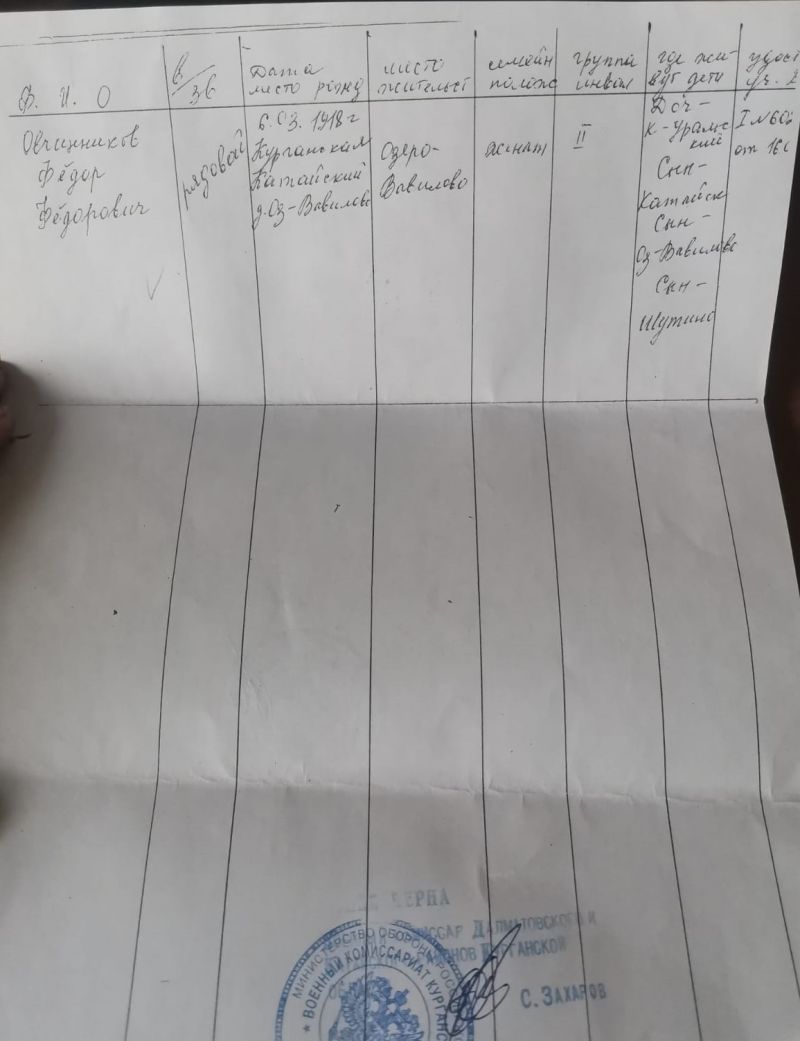 Ф. И. О
в/зв
Дата
место рожд
место
жительст
семейн
полож
группа
инвал
где жи-
вут дети
удост
Овчинников
Фёдор
Фёдорович
рядовой
6.03.1918 г
Курганская
Катайский
д. Оз-Вавилово
Озеро-
Вавилово
женат
II
Доч-
К-Уральс
кий
Сын-
Катайск
Сын-
Оз-Вавилово
Сын-
Шутино
I №606
от
ВЕРНА
ДАЛМАТОВСКОГО И
КУРГАНСКОЙ
С. ЗАХАРОВ
МИНИСТЕРСТВО ОБОРОНЫ
ВОЕННЫЙ КОМИССАРИАТ